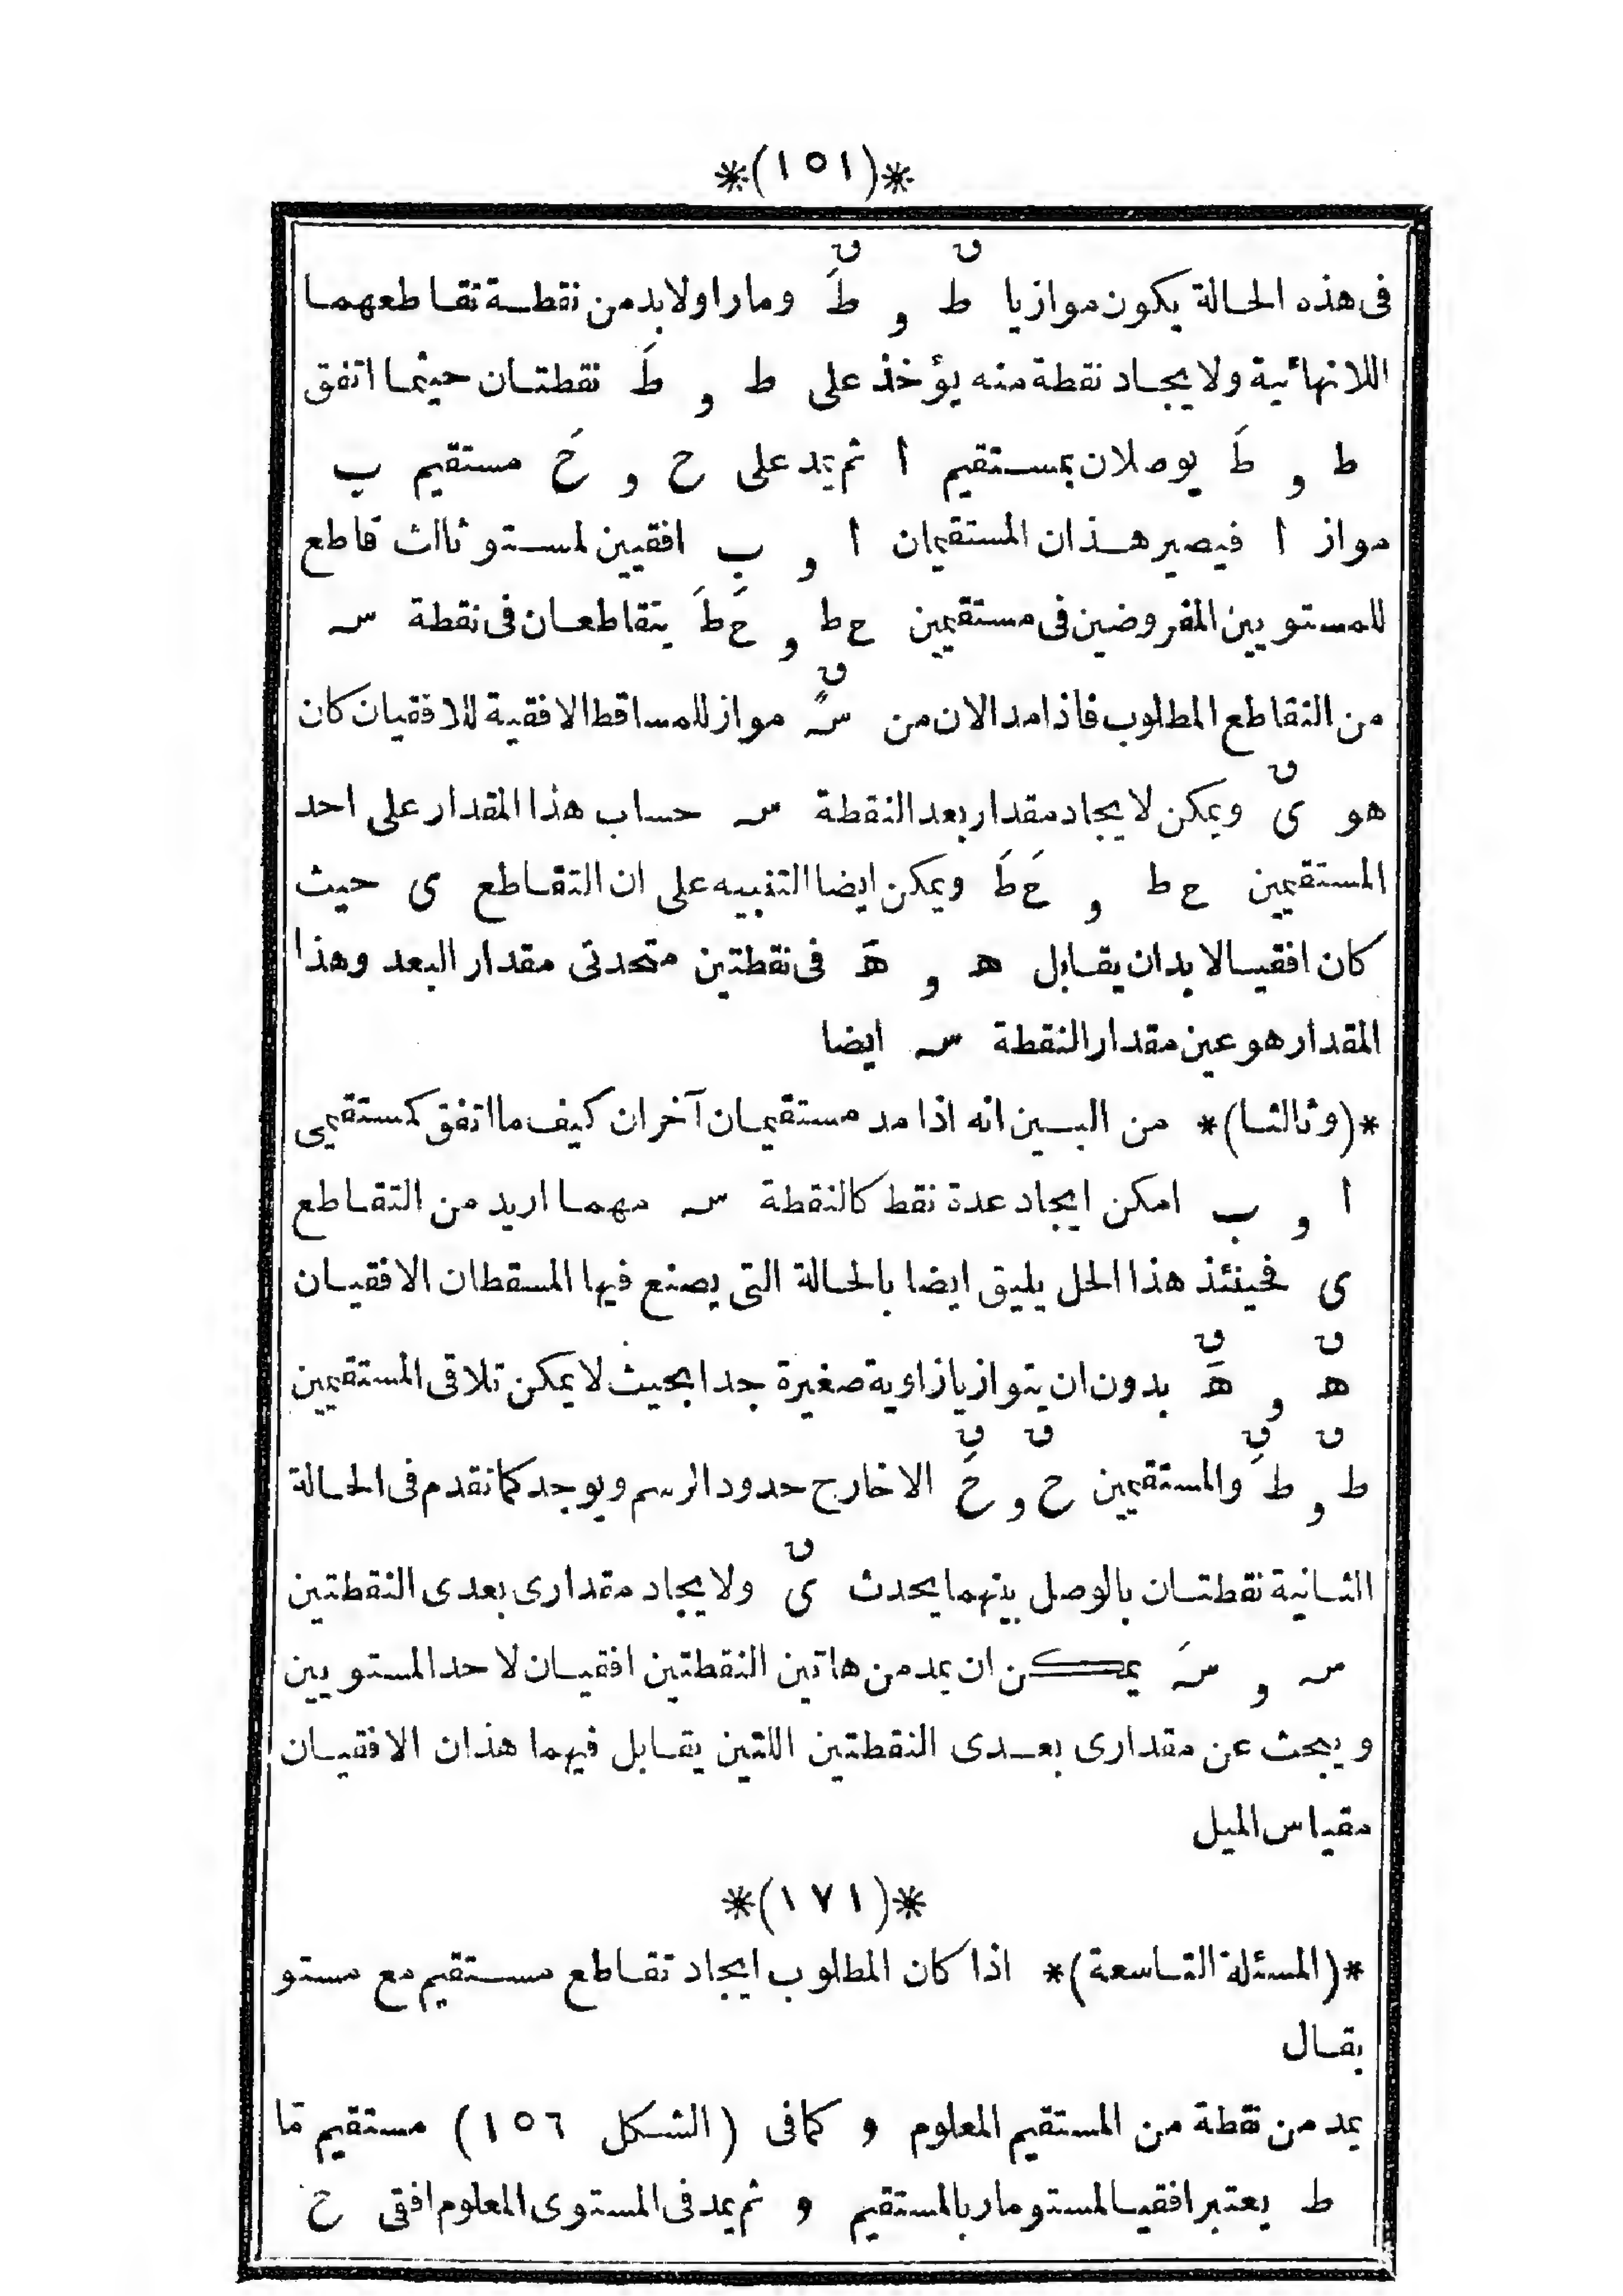 *(١٥١)*
فى هذه الحالة يكون موازيا ط^ق و طَ^ق ومارا ولا بد من نقطة تقاطعهما
اللانهائية ولايجاد نقطة منه يؤخذ على ط و طَ نقطتان حيثما اتفق
ط و طَ يوصلان بمستقيم ا ثم يمد على ح و حَ مستقيم ب
مواز ا فيصير هذان المستقيمان ا و ب افقيين لمستو ثالث قاطع
للمستويين المفروضين فى مستقيمين ح ط و حَ طَ يتقاطعان فى نقطة س
من التقاطع المطلوب فاذا مد الان من س^ق مواز للمساقط الافقية للافقيان كان
هو ى^ق ويمكن لايجاد مقدار بعد النقطة س حساب هذا المقدار على احد
المستقيمين ح ط و حَ طَ ويمكن ايضا التنبيه على ان التقاطع ى حيث
كان افقيا لابد ان يقابل ه و هَ فى نقطتين متحدتى مقدار البعد وهذا
المقدار هو عين مقدار النقطة س ايضا
*(وثالثا)* من البين انه اذا مد مستقيمان آخران كيف ما اتفق كمستقيمى
ا و ب امكن ايجاد عدة نقط كالنقطة س مهما اريد من التقاطع
ى فحينئذ هذا الحل يليق ايضا بالحالة التى يصنع فيها المسقطان الافقيان
ه^ق و هَ^ق بدون ان يتوازيا زاوية صغيرة جدا بحيث لا يمكن تلاقى المستقيمين
ط^ق و طَ^ق والمستقيمين ح^ق و حَ^ق الا خارج حدود الرسم ويوجد كما تقدم فى الحالة
الثانية نقطتان بالوصل بينهما يحدث ى^ق ولايجاد مقدارى بعدى النقطتين
س و سَ يمكن ان يمد من هاتين النقطتين افقيان لاحد المستويين
ويبحث عن مقدارى بعدى النقطتين اللتين يقابل فيهما هذان الافقيان
مقياس الميل
*(١٧١)*
*(المسئلة التاسعة)* اذا كان المطلوب ايجاد تقاطع مستقيم مع مستو
يقال
يمد من نقطة من المستقيم المعلوم و كما فى (الشكل ١٥٦) مستقيم مّا
ط يعتبر افقيا لمستو مار بالمستقيم و ثم يمد فى المستوى المعلوم افقى ح